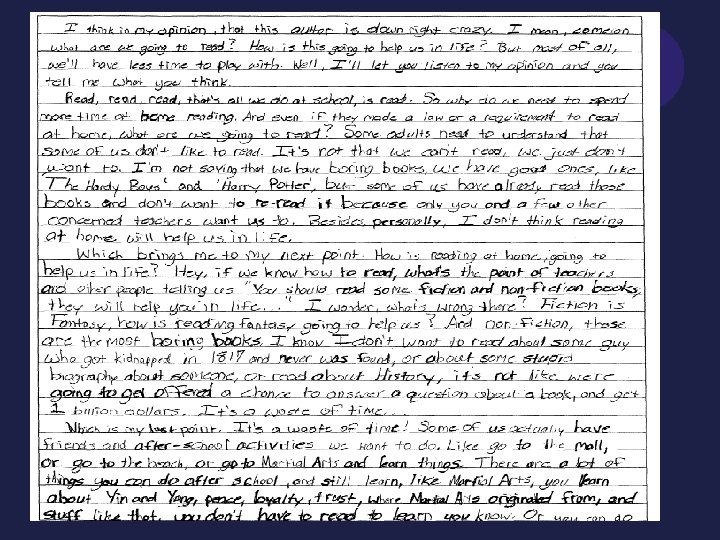 I think in my opinion, that this author is down right crazy. I mean, comeon
what are we going to read? How is this going to help us in life? But most of all,
we'll have less time to play with. Well, I'll let you listen to my opinion and you
tell me what you think.
Read, read, read, that's all we do at school, is read. So why do we need to spend
more time at home reading. And even if they made a law or a requirement to read
at home, what are we going to read? Some adults need to understand that
some of us don't like to read. It's not that we can't read, we just don't
want to. I'm not saying that we have boring books, we have good ones, like
'The Hardy Boys' and 'Harry Potter', but some of us have already read those
books and don't want to re-read it because only you and a few other
concerned teachers want us to. Besides, personally, I don't think reading
at home will help us in life.
Which brings me to my next point. How is reading at home, going to
help us in life? "Hey, if we know how to read, what's the point of teachers
and other people telling us "You should read some fiction and non-fiction books,
they will help you in life..." I wonder, what's wrong there? Fiction is
Fantasy, how is reading fantasy going to help us? And non-fiction, those
are the most boring books. I know I don't want to read about some guy
who got kidnapped in 1817 and never was found, or about some stupid
biography about someone, or read about History, it's not like were
going to get offered a chance to answer a question about a book, and get
1 billion dollars. It's a waste of time...
Which is my last point. It's a waste of time! Some of us actually have
friends and after-school activities we want to do. Like go to the mall,
or go to the beach, or go to Martial Arts and learn things. There are a lot of
things you can do after school, and still learn, like Martial Arts, you learn
about Yin and Yang, peace, loyalty, trust, where Martial Arts originated from, and
stuff like that, you don't have to read to learn you know. Or you can do